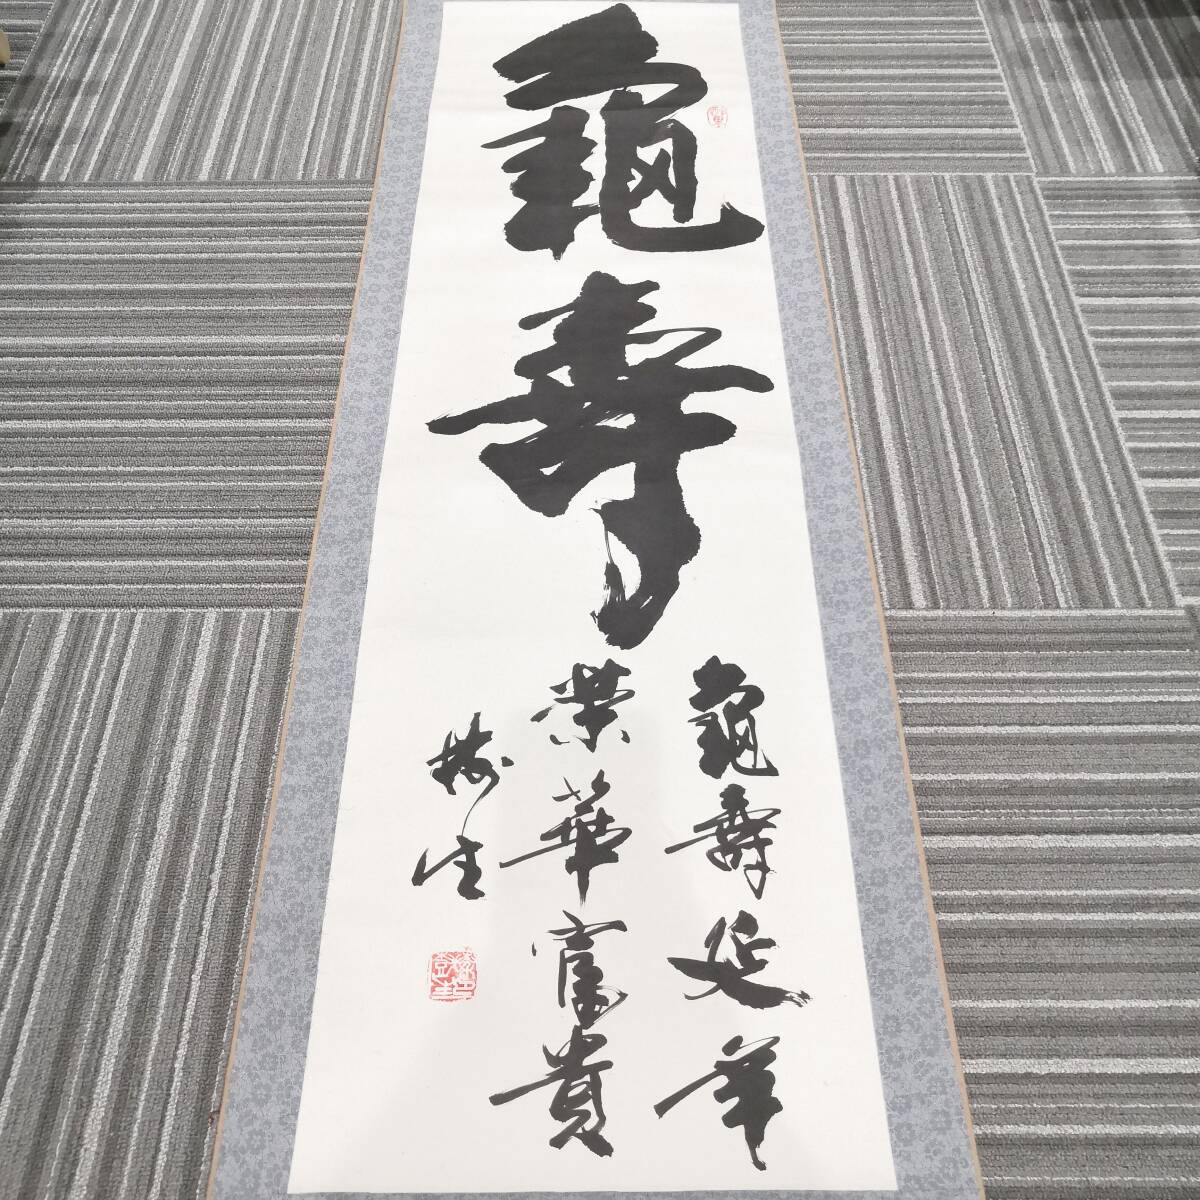 龜壽
龜壽延年
榮華富貴